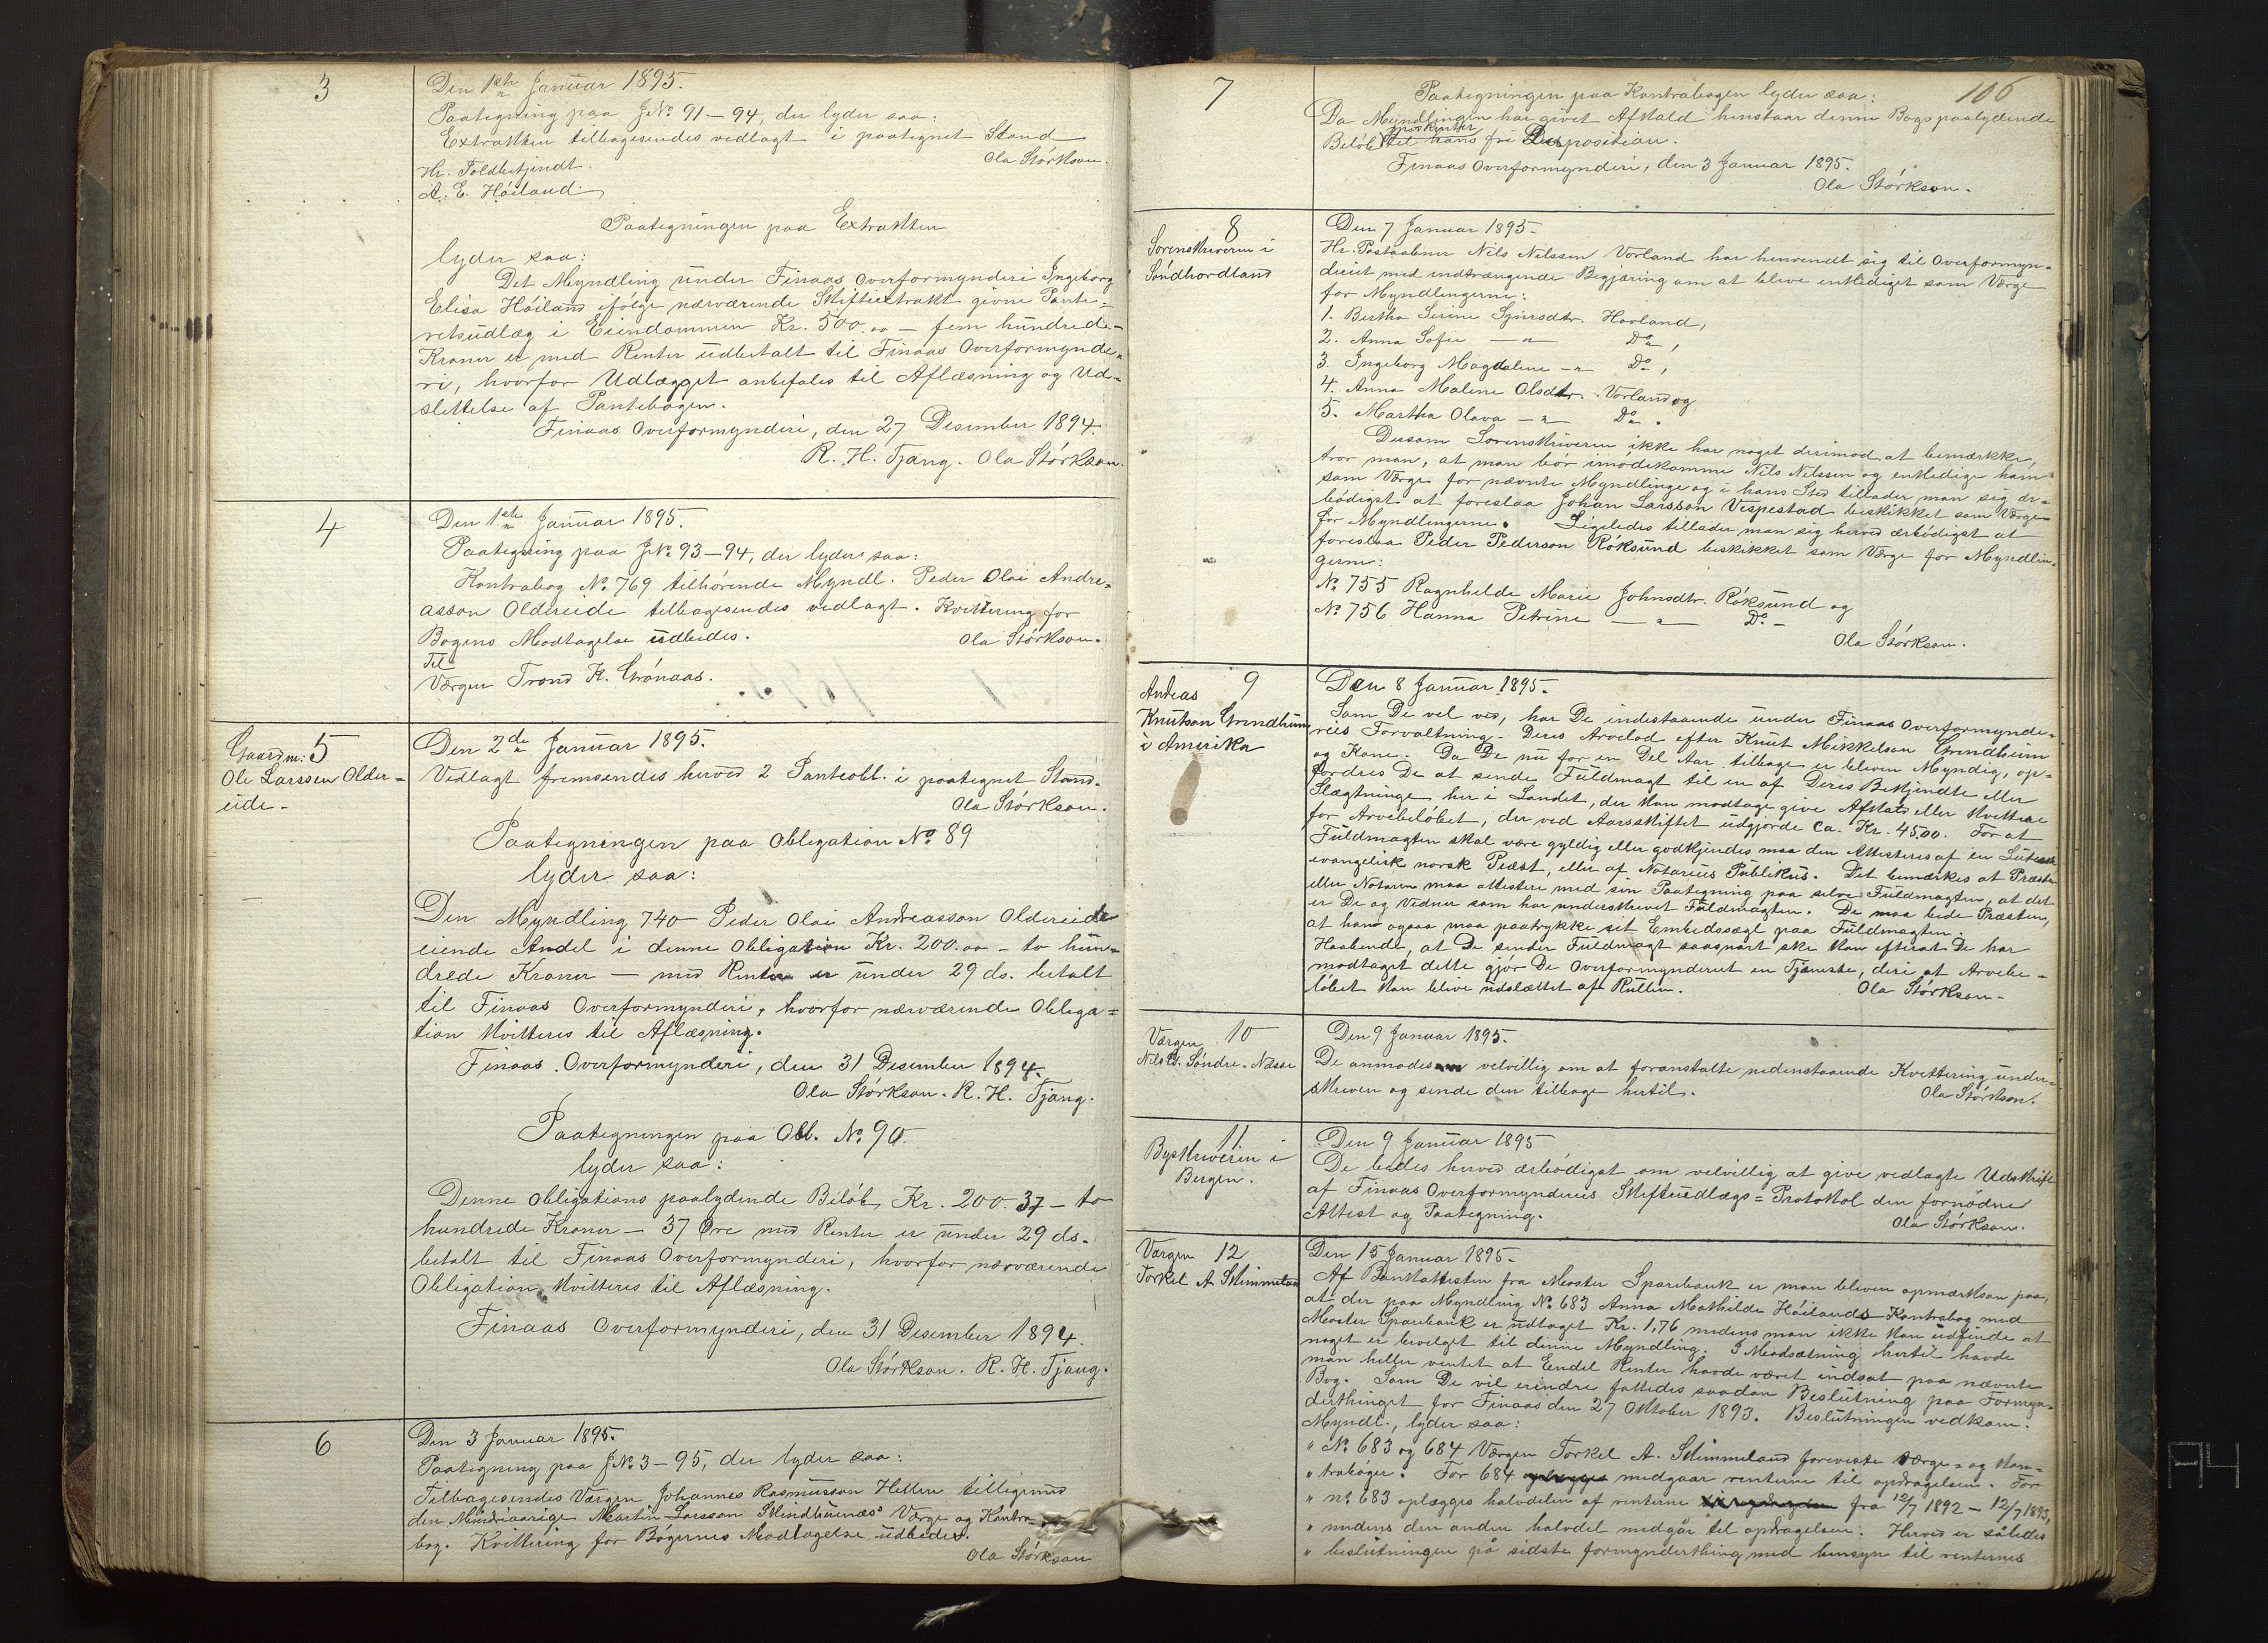 3
Den 1ste Januar 1895.
Paategning paa J.No. 91-94, der lyder saa:
Extrakten tilbagesendes vedlagt i paategnet Stand
Ola Störkson.
Hr. Toldbetjendt
A. E. Höiland.
Paategningen paa Extrakten
lyder saa:
Det Myndling under Finaas Overformynderi Ingeborg
Elisa Höiland ifölge nærværende Skifteextrakt givne Pante-
retsudlæg i Eiendommen Kr. 500.00 — fem hundrede-
Kroner er med Renter udbetalt til Finaas Overformynde-
ri, hvorfor Udlægget anbefales til Aflæsning og Ud-
slettelse af Pantebogen.
Finaas Overformynderi, den 27 Desember 1894.
R. H. Tjang. Ola Störkson.
4
Den 1ste Januar 1895.
Paategning paa J.No. 93-94, der lyder saa:
Kontrabog No. 769 tilhörende Myndl. Peder Olai Andre-
asson Oldereide tilbagesendes vedlagt. Kvittering for
Bogens Modtagelse udbedes.
Ola Störkson.
Til
Værgen Trond K. Grönaas.
Gaardm: 5
Ole Larssen Older-
eide-
Den 2den Januar 1895.
Vedlagt fremsendes herved 2 Panteobl. i paategnet Stand.
Ola Störkson.
Paategningen paa Obligation No. 89
lyder saa:
Den Myndling 740 Peder Olai Andreasson Oldereide
eiende Andel i denne Obligation Kr. 200.00 - to hun-
drede Kroner — med Renter er under 29 ds. betalt
til Finaas Overformynderi, hvorfor nærværende Obliga-
tion kvitteres til Aflæsning.
Finaas Overformynderi, den 31 Desember 1894.
Ola Störkson. R. H. Tjang.
Paategningen paa Obl. No. 90
lyder saa:
Denne Obligations paalydende Belöb Kr. 200.37 - to
hundrede Kroner — 37 Øre med Renter er under 29 ds.
betalt til Finaas Overformynderi, hvorfor nærværende
Obligation kvitteres til Aflæsning.
Finaas Overformynderi, den 31 Desember 1894.
Ola Störkson. R. H. Tjang.
6
Den 3 Januar 1895.
Paategning paa J.No. 3-95, der lyder saa:
Tilbagesendes Værgen Johannes Rasmusson Hellen tilligemed
den Mindreaarige Martin Larsson Skindhuenæs' Værge og Kontra-
bog. Kvittering for Bögernes Modtagelse udbedes.
Ola Störkson
106
7
Paategningen paa Kontrabogen lyder saa:
Da Myndlingen har givet Afkald henstaar denne Bogs paalydende
Belöb til hans fri Disposition.
Finaas Overformynderi, den 3 Januar 1895.
Ola Störkson.
8
Sorenskriveren i
Söndhordland
Den 7 Januar 1895-
Hr. Postaabner Nils Nilssen Vorland har henvendt sig til Overformyn-
deriet med indtrængende Begjæring om at bleve entlediget som Værge
for Myndlingerne:
1. Bertha Serine Sjursdtr. Hovland,
2. Anna Sofie —"— Do,
3. Ingeborg Magdalene —"— Do,
4. Anna Maline Olsdtr. Vorland og
5. Martha Olava —"— Do.
Dersom Sorenskriveren ikke har noget derimod at bemærke,
tror man, at man bör imödekomme Nils Nilssen og entledige ham
som Værge for nævnte Myndlinge og i hans Sted tillader man sig ær-
bödigst at foreslaa Johan Larsson Vespestad beskikket som Værge
for Myndlingerne. Ligeledes tillader man sig herved ærbödigst at
foreslaa Peder Pederson Röksund beskikket som Værge for Myndlin-
gerne:
No. 755 Ragnhilde Marie Johnsdtr. Röksund og
No. 756 Hanna Petrine —"— Do —
Ola Störkson.
9
Andreas
Knutson Grindheim
i Amerika
Den 8 Januar 1895.
Som De vel ved, har De indestaaende under Finaas Overformynde-
ries Forvaltning Deres Arvelod efter Knut Mikkelson Grindheim
og Kone. Da De nu for en Del Aar tilbage er bleven Myndig, op-
fordres De at sende Fuldmagt til en af Deres Bekjendte eller
Slægtninge her i Landet, der kan modtage give Afkald eller kvittere
for Arvebelöbet, der ved Aarsskiftet udgjorde ca. Kr. 4500. For at
Fuldmagten skal være gyldig eller godkjendes maa den Attesteres af en Luthersk
evangelisk norsk Præst, eller af Notarius Publikus. Det bemærkes at Præsten
eller Notaren maa attestere med sin Paategning paa selve Fuldmagten, at det
er De og Vidner som har underskrevet Fuldmagten. De maa bede Præsten,
at han ogsaa maa paatrykke sit Embedssegl paa Fuldmagten.
Haabende, at De sender Fuldmagt saasnart ske kan efterat De har
modtaget dette gjör De Overformynderiet en Tjeneste, deri at Arvebe-
löbet kan blive udslættet af Rullen.
Ola Störkson-
10
Værgen
Nils Söndre-Nilsse
Den 9 Januar 1895.
De anmodes velvillig om at foranstalte nedenstaaende Kvittering under-
skreven og sende den tilbage hertil.
Ola Störkson.
11
Byskriveren i
Bergen.
Den 9 Januar 1895
De bedes herved ærbödigst om velvillig at give vedlagte Udskrift
af Finaas Overformynderies Skifteudlægs=Protokol den fornödne
Attest og Paategning.
Ola Störkson.
Værgen 12
Torkel A Skimmeland
Den 15 Januar 1895-
Af Bankattesten fra Moster Sparebank er man bleven opmærksom paa,
at der paa Myndling No. 683 Anna Mathilde Höilands Kontrabog med
Moster Sparebank er udtaget Kr. 1,76 medens man ikke kan udfinde at
noget er bevilget til denne Myndling. I Modsætning hertil havde
man heller ventet at Endel Renter havde været indsat paa nævnte
Bog. Som De vil erindre fattedes saadan Beslutning paa Formyn-
derthinget for Finaas den 27 Oktober 1893. Beslutningen vedkom.
Myndl., lyder saa:
" No. 683 og 684 Værgen Torkel A. Skimmeland foreviste værge= og kon-
" traböger. For 684 medgaar renterne til opdragelsen. For
" no. 683 oplægges halvdelen af renterne fra 12/7 1892 - 12/7 1893,
" medens den anden halvdel medgår til opdragelsen. Herved er således
" beslutningen på sidste formynderthing med hensyn til renternes